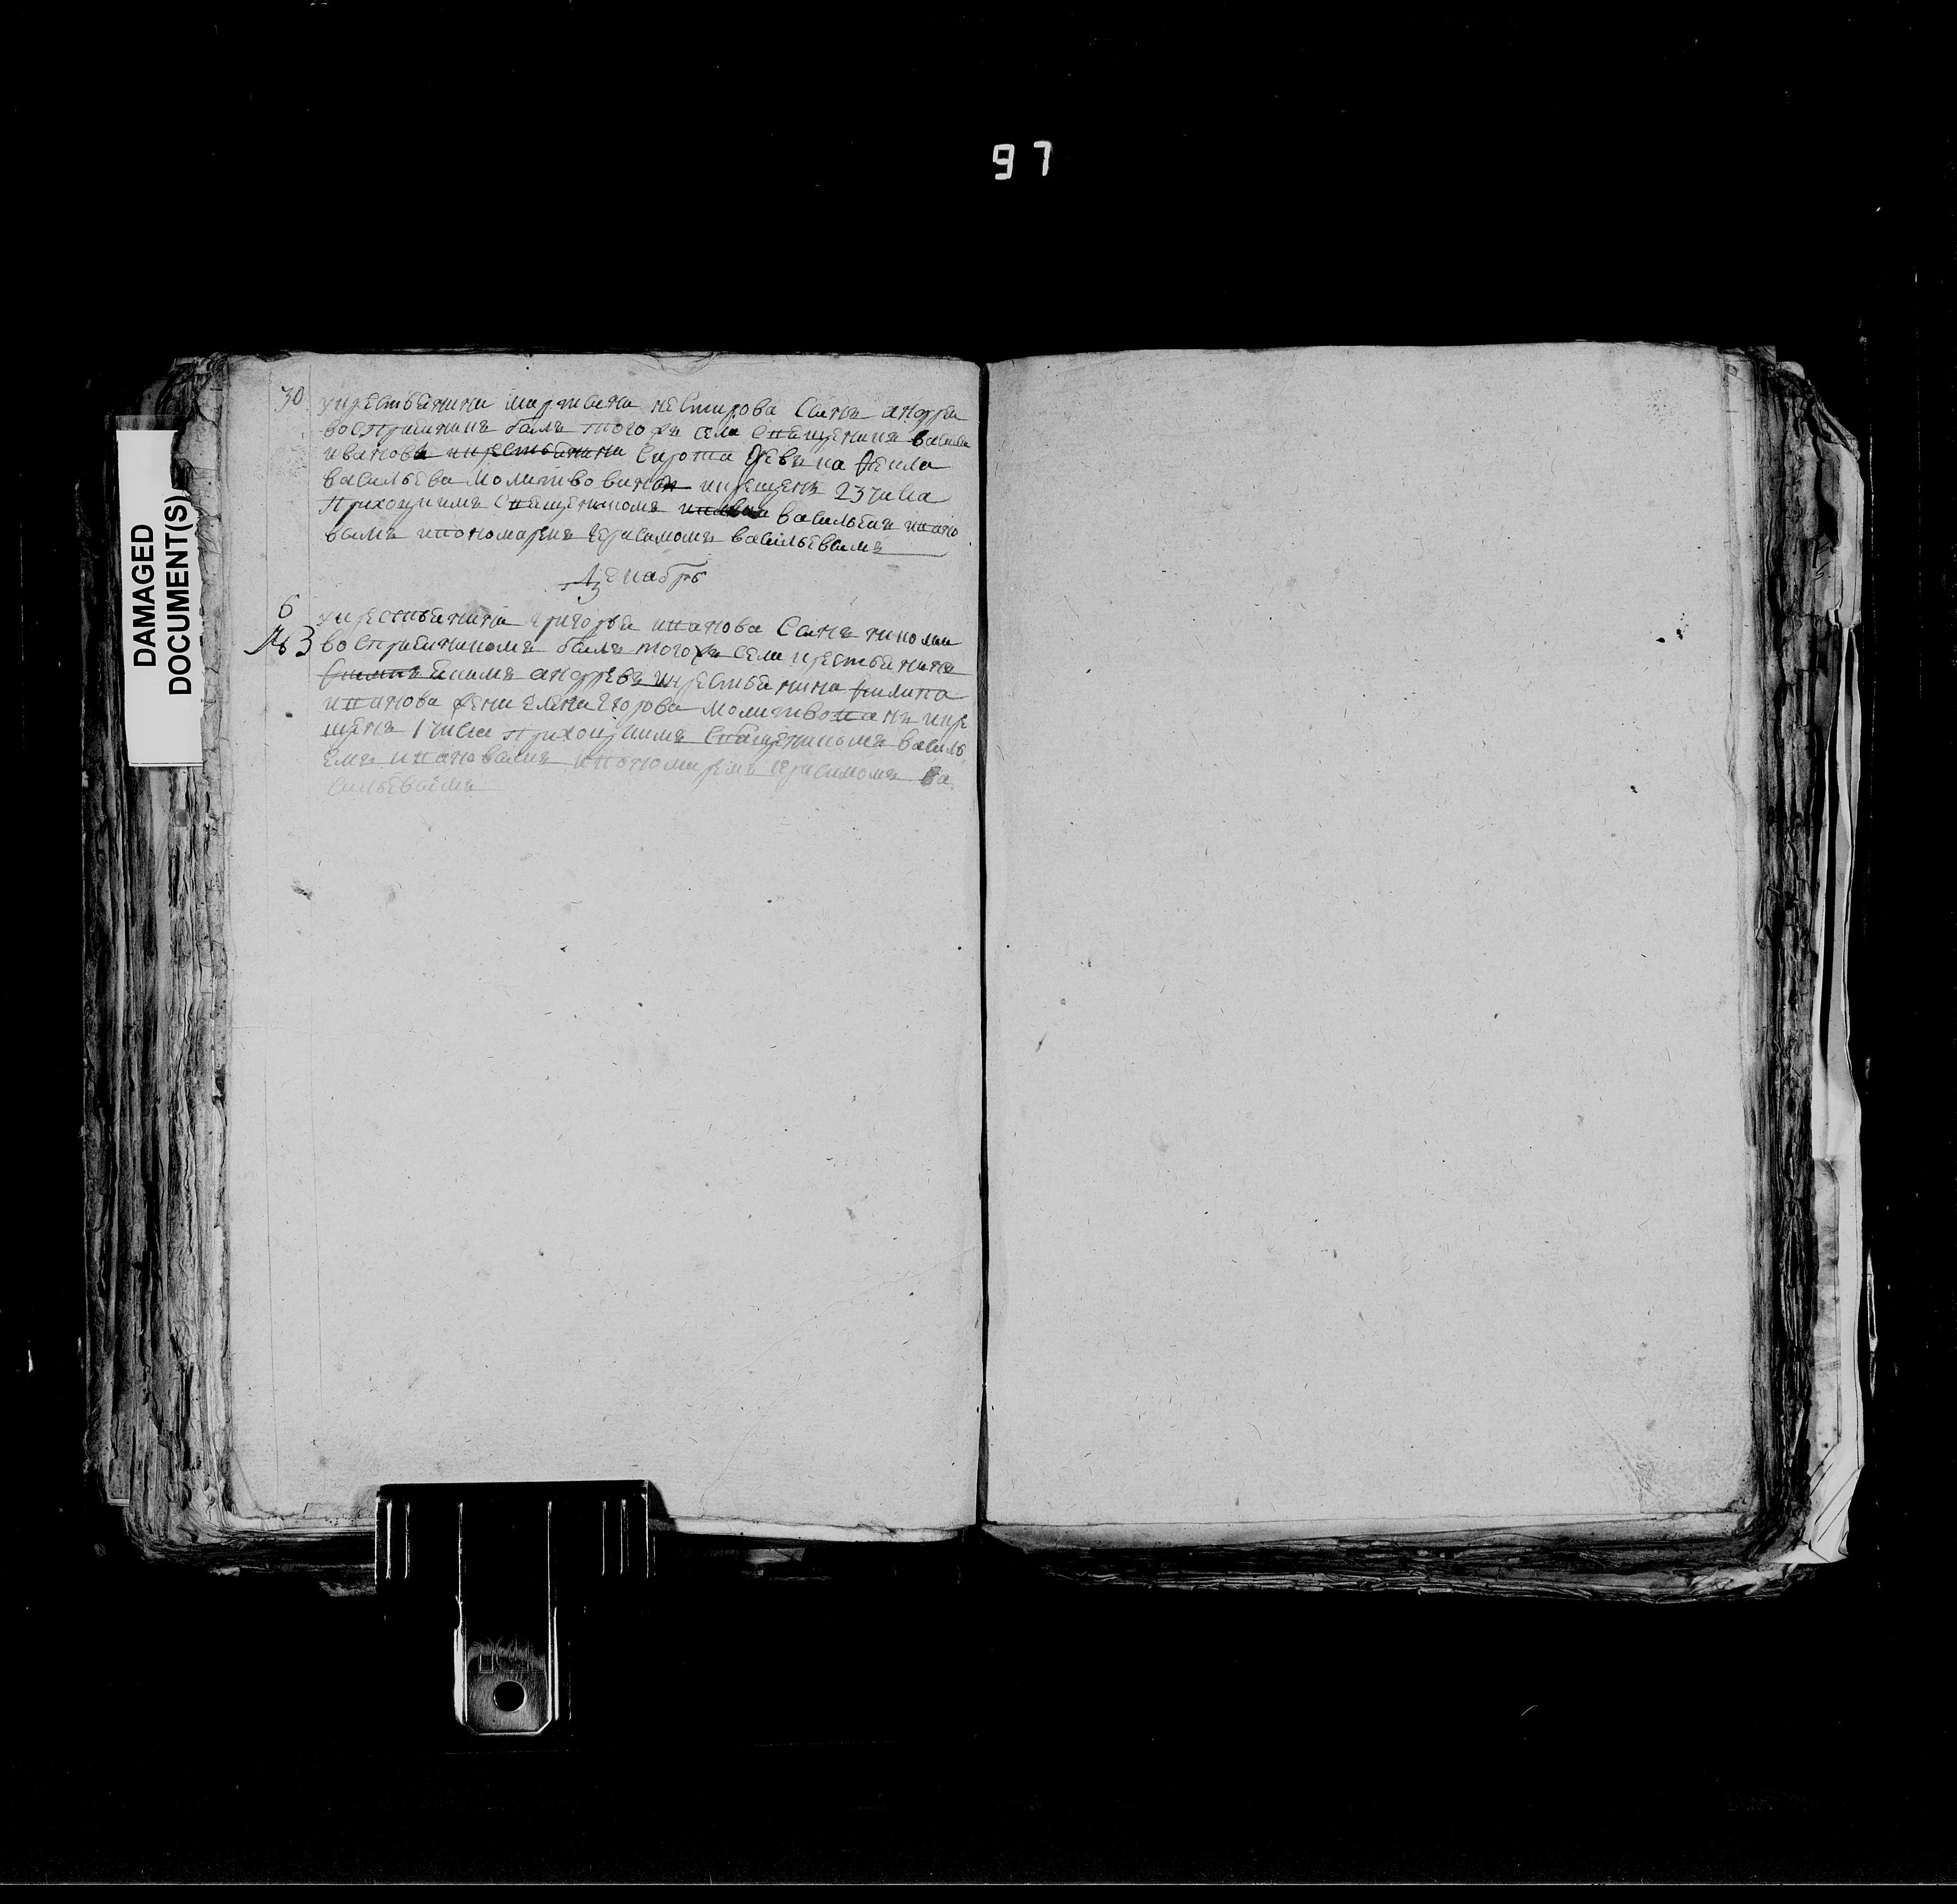 97
DAMAGED
DOCUMENT(S)
30 укрестьянина мартина нестирова Сынъ андреи
восприемникъ былъ того жъ села Священикъ василеи
ивановъ Сирота девка Фекла
васильева Молитвовинъ икрещенъ 23 числа
Приходцкимъ Священикомъ васильемъ ивано
вымъ ипономаремъ герасимомъ васильевымъ
Декабрь
6 укрестьянина григорья иванова Сынъ николаи
№ 3 восприемникомъ былъ того жъ села крестьянинъ
екимъ андреевъ икрестьянина филипа
иванова жена елена егорова Молитвованъ икре
щенъ числа приходцкимъ Священикомъ василь
емъ ивановымъ ипономаремъ герасимомъ ва
сильевымъ